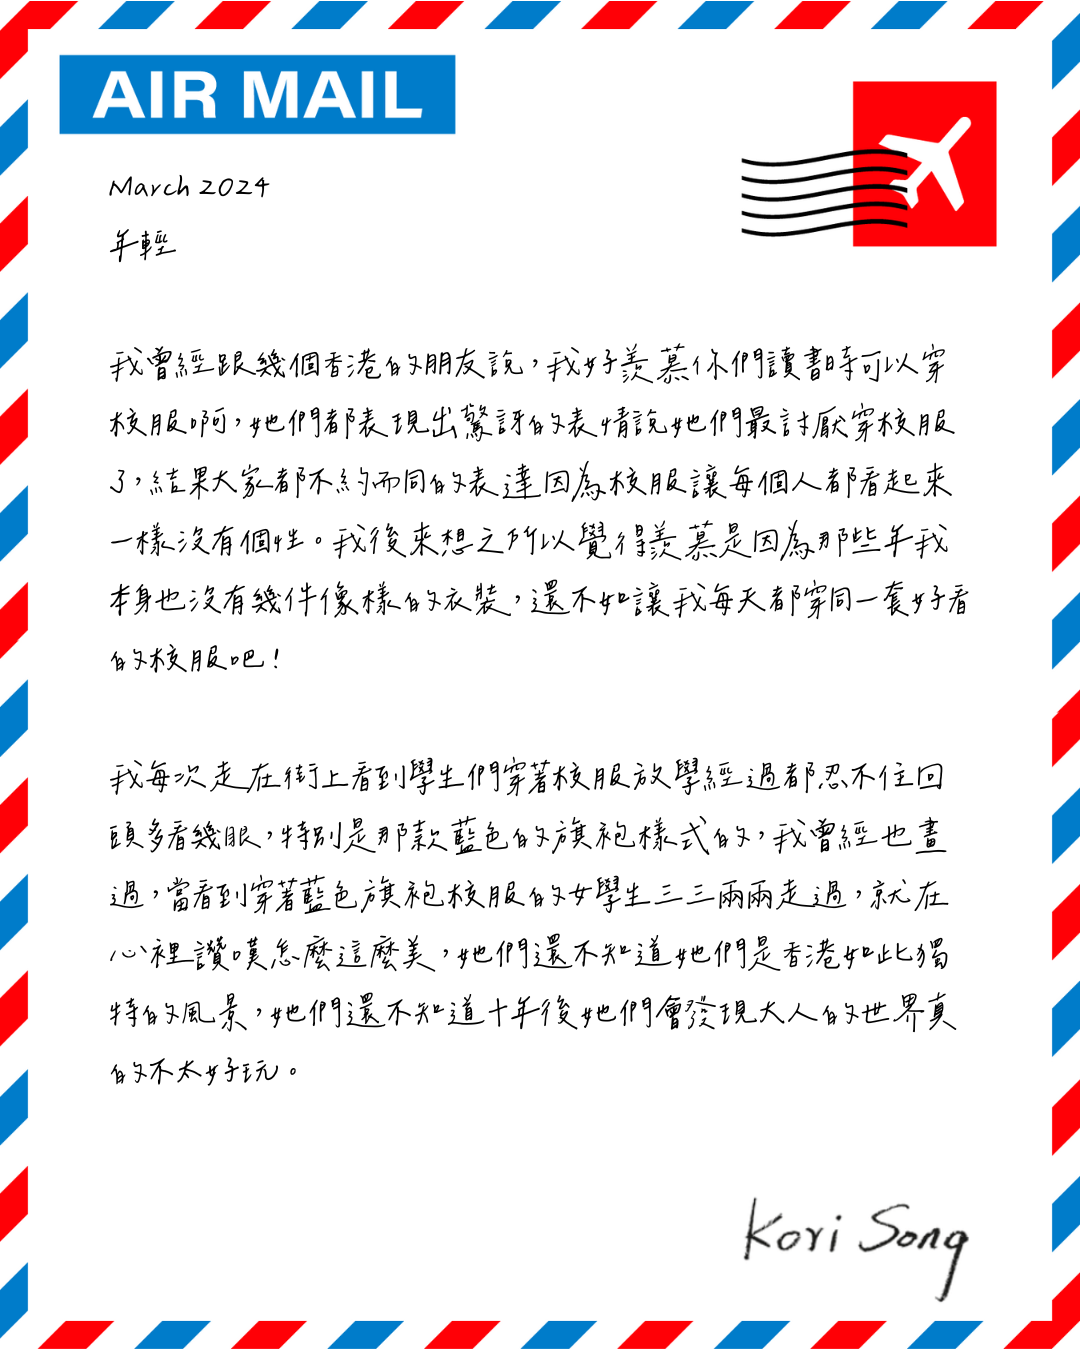 AIR MAIL
March 2024
年輕
我曾經跟幾個香港的朋友說，我好羨慕你們讀書時可以穿
校服啊，她們都表現出驚訝的表情說她們最討厭穿校服
了，結果大家都不約而同的表達因為校服讓每個人都看起來
一樣沒有個性。我後來想之所以覺得羨慕是因為那些年我
本身也沒有幾件像樣的衣裝，還不如讓我每天都穿同一套好看
的校服吧！
我每次走在街上看到學生們穿著校服放學經過都忍不住回
頭多看幾眼，特別是那款藍色的旗袍樣式的，我曾經也畫
過，當看到穿著藍色旗袍校服的女學生三三兩兩走過，就在
心裡讚嘆怎麼這麼美，她們還不知道她們是香港如此獨
特的風景，她們還不知道十年後她們會發現大人的世界真
的不太好玩。
Kori Song